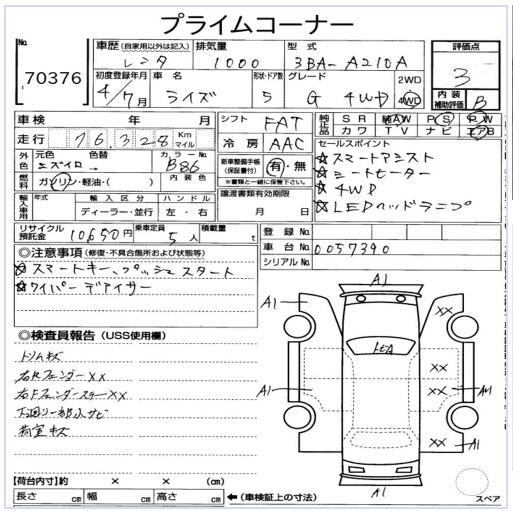 プライムコーナー
No. 70376
車歴 (自家用以外は記入) レンタ
排気量 1000
型式 3BA-A210A
評価点 3
初度登録年月 4/7月
車名 ライズ
形状・ドア数 5
グレード G 4WD
2WD
4WD
内装補助評価 B
車検 年 月
走行 76,328 Km マイル
シフト FAT
冷房 AAC
純正品 SR AW PS PW
カワ TV ナビ エアB
外色 元色 色替 カラーNo.
B86
内装色
燃料 ガソリン・軽油・( )
新車整備手帳(保証書付) 有・無
※書類と一緒に保管下さい。
セールスポイント
☆スマートアシスト
☆シートヒーター
☆4WD
☆LEDヘッドランプ
輸入車用 年式 輸入区分 ハンドル
ディーラー・並行 左・右
譲渡書類有効期限
月 日
リサイクル預託金 10650円
乗車定員 5人
積載量 t
登録No.
車台No. 0057390
シリアルNo.
◎注意事項 (修復・不具合箇所および状態等)
☆スマートキー、プッシュスタート
☆ワイパーデアイサー
◎検査員報告 (USS使用欄)
トリムキズ
右Rフェンダー××
右Fフェンダーステー××
下回り一部小サビ
荷室キズ
A1
A1
××
A1
××
××
××
A1
A1
【荷台内寸】約 × × (cm)
長さ cm 幅 cm 高さ cm
←(車検証上の寸法)
スペア